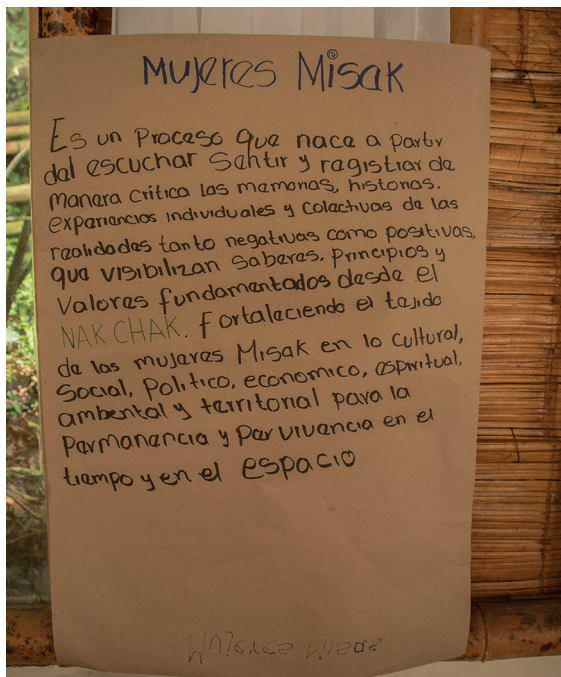 Mujeres Misak
Es un Proceso que nace a partir
del escuchar Sentir y registrar de
manera critica las memorias, historias.
experiencias individuales y colectivas de las
realidades tanto negativas como positivas,
que visibilizan saberes, Principios y
Valores fundamentados desde el
NAK CHAK. Fortaleciendo el tejido
de las mujeres Misak en lo cultural,
Social, Politico, economico, espiritual,
ambental y territorial para la
Permanencia y Pervivencia en el
tiempo y en el espacio